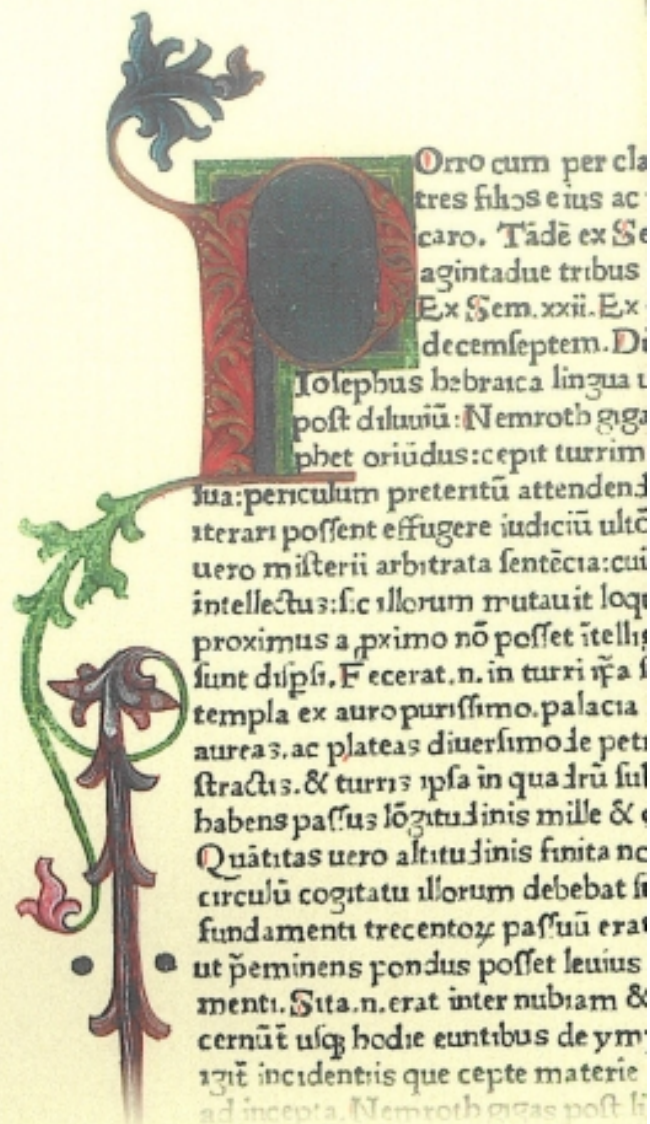 POrro cum per cla
tres filios eius ac
caro. Tādē ex Se
agintadue tribus
Ex Sem.xxii.Ex
decemſeptem.Di
Ioſephus hebraica lingua
poſt diluuiū:Nemroth giga
phet oriūdus:cepit turrim
ſua:periculum preteritū attendend
iterari poſſent effugere iudiciū ultō
uero miſterii arbitrata ſentēcia:cui
intellectus:ſic illorum mutauit loqu
proximus a ꝓximo nō poſſet ītellig
ſunt diſpſi.Fecerat.n.in turri ip̄a
templa ex auro puriſſimo.palacia
aureas.ac plateas diuerſimode petr
ſtractis.& turris ipſa in quadrū ſub
habens paſſus lōgitudinis mille &
Quātitas uero altitudinis finita no
circulū cogitatu illorum debebat
fundamenti trecentoꝝ paſſuū erat
ut p̄eminens pondus poſſet leuius
menti.Sita.n.erat inter nubiam &
cernūt̄ uſqꝫ hodie euntibus de
igit̄ incidentiis que cepte materie
ad incepta.Nemroth gigas poſt